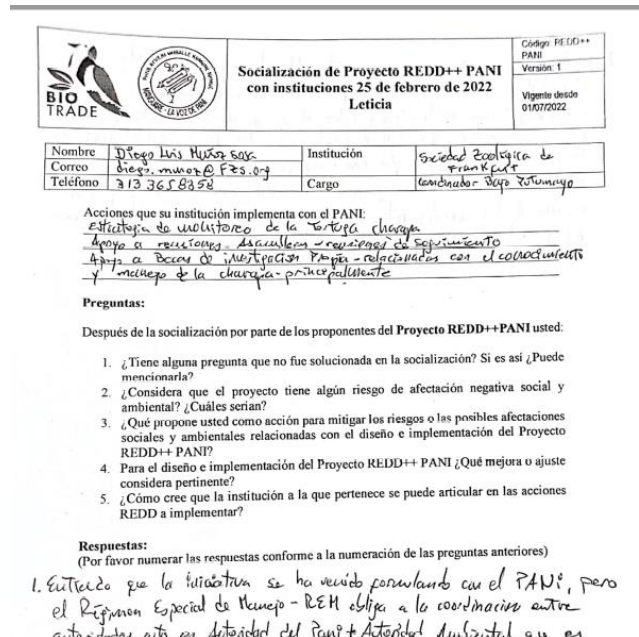 BIO
TRADE
MANGUARE - LA VOZ DE PANI
Socialización de Proyecto REDD++ PANI
con instituciones 25 de febrero de 2022
Leticia
Código REDD++
PANI
Versión: 1
Vigente desde
01/07/2022
Nombre Diego Luis Muñoz sosa Institución Sociedad Zoológica de Frankfurt
Correo diego.munoz@fzs.org
Teléfono 313 3658358 Cargo Coordinador Bajo Putumayo
Acciones que su institución implementa con el PANI:
Estrategia de monitoreo de la Tortuga charapa
Apoyo a reuniones - Asambleas - reuniones de Seguimiento
Apoyo a Becas de investigación Propia - relacionadas con el conocimiento
y manejo de la charapa - principalmente
Preguntas:
Después de la socialización por parte de los proponentes del Proyecto REDD++PANI usted:
1. ¿Tiene alguna pregunta que no fue solucionada en la socialización? Si es así ¿Puede
mencionarla?
2. ¿Considera que el proyecto tiene algún riesgo de afectación negativa social y
ambiental? ¿Cuáles serian?
3. ¿Qué propone usted como acción para mitigar los riesgos o las posibles afectaciones
sociales y ambientales relacionadas con el diseño e implementación del Proyecto
REDD++ PANI?
4. Para el diseño e implementación del Proyecto REDD++ PANI ¿Qué mejora o ajuste
considera pertinente?
5. ¿Cómo cree que la institución a la que pertenece se puede articular en las acciones
REDD a implementar?
Respuestas:
(Por favor numerar las respuestas conforme a la numeración de las preguntas anteriores)
1. Entiendo que la iniciativa se ha venido formulando con el PANI, pero
el Régimen Especial de Manejo - REM obliga a la coordinación entre